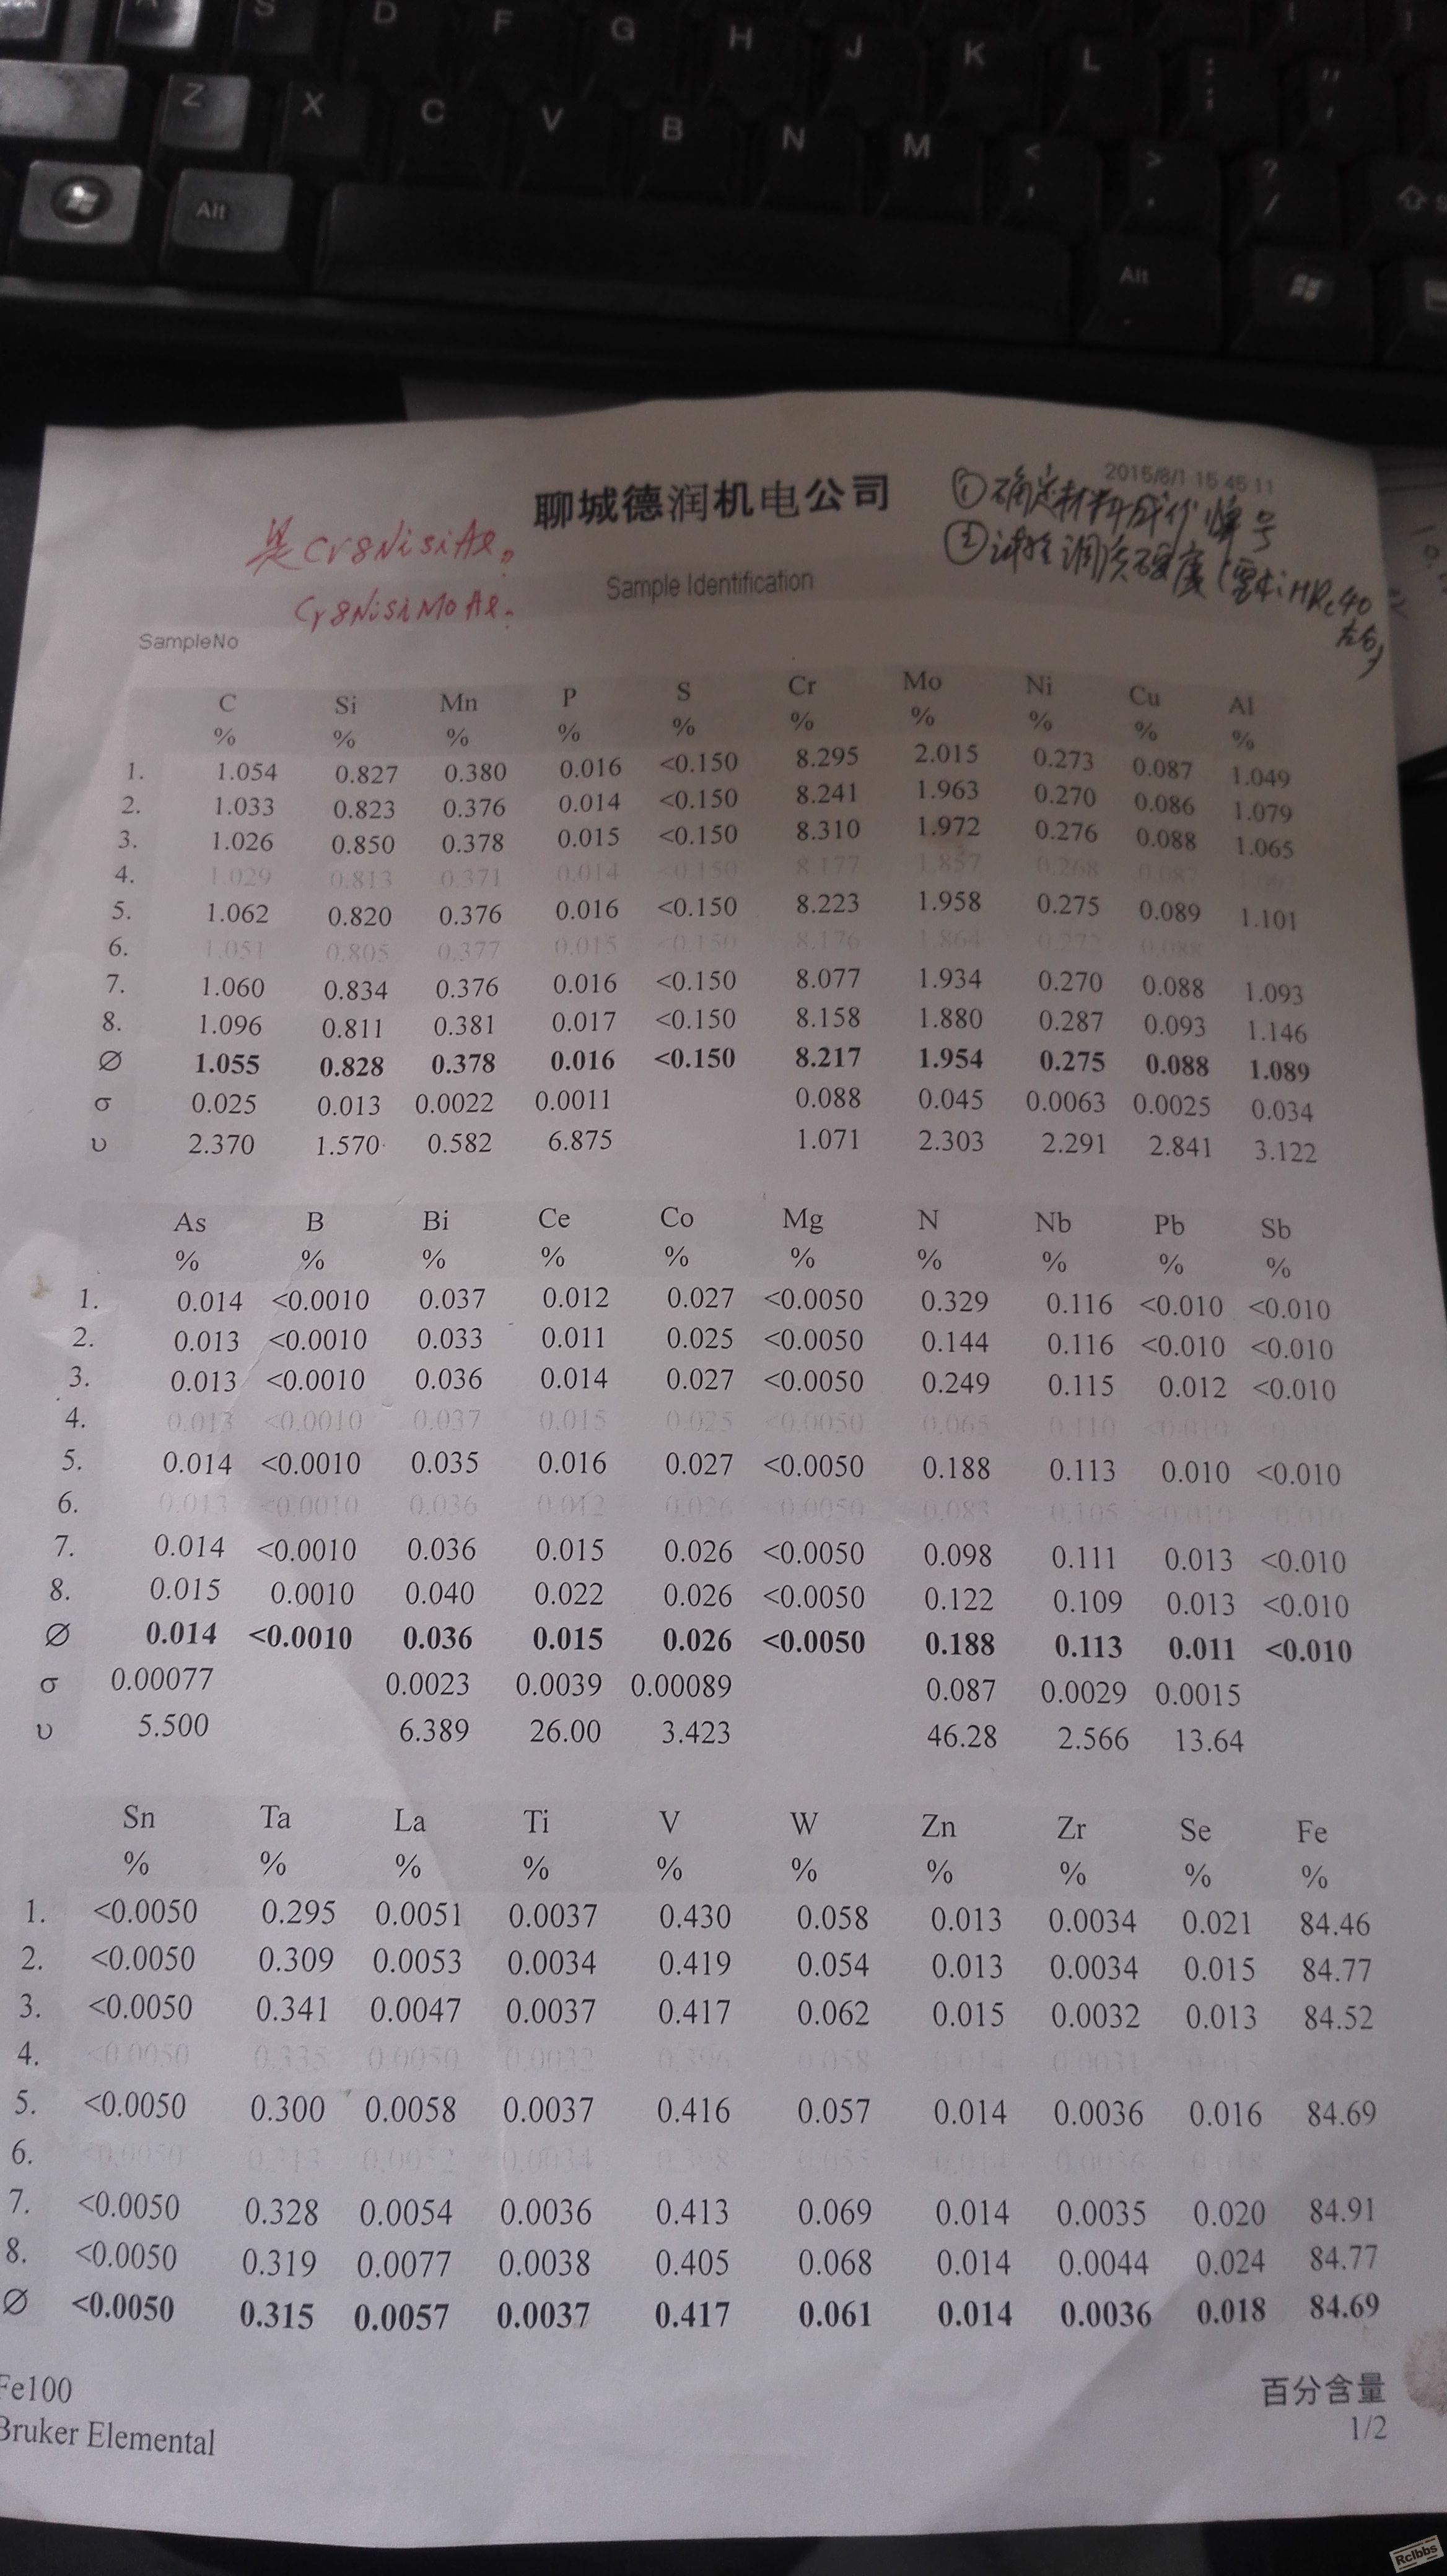 A S D F G H J K L : ; " '
Z X C V B N M < , > . ? /
Alt Alt
2015/8/1 15 45 11
聊城德润机电公司
①确定材料成份牌号
②试验调质硬度(要求:HRc40左右)
是Cr8NiSiAl。
Cr8NiSiMoAl.
Sample Identification
SampleNo
C Si Mn P S Cr Mo Ni Cu Al
% % % % % % % % % %
1. 1.054 0.827 0.380 0.016 <0.150 8.295 2.015 0.273 0.087 1.049
2. 1.033 0.823 0.376 0.014 <0.150 8.241 1.963 0.270 0.086 1.079
3. 1.026 0.850 0.378 0.015 <0.150 8.310 1.972 0.276 0.088 1.065
4. 1.029 0.813 0.371 0.014 <0.150 8.177 1.857 0.268 0.087
5. 1.062 0.820 0.376 0.016 <0.150 8.223 1.958 0.275 0.089 1.101
6. 1.051 0.805 0.377 0.015 <0.150 8.176 1.864 0.272 0.088
7. 1.060 0.834 0.376 0.016 <0.150 8.077 1.934 0.270 0.088 1.093
8. 1.096 0.811 0.381 0.017 <0.150 8.158 1.880 0.287 0.093 1.146
Ø 1.055 0.828 0.378 0.016 <0.150 8.217 1.954 0.275 0.088 1.089
σ 0.025 0.013 0.0022 0.0011 0.088 0.045 0.0063 0.0025 0.034
υ 2.370 1.570 0.582 6.875 1.071 2.303 2.291 2.841 3.122
As B Bi Ce Co Mg N Nb Pb Sb
% % % % % % % % % %
1. 0.014 <0.0010 0.037 0.012 0.027 <0.0050 0.329 0.116 <0.010 <0.010
2. 0.013 <0.0010 0.033 0.011 0.025 <0.0050 0.144 0.116 <0.010 <0.010
3. 0.013 <0.0010 0.036 0.014 0.027 <0.0050 0.249 0.115 0.012 <0.010
4. 0.013 <0.0010 0.037 0.015 0.025 <0.0050 0.065 0.110 <0.010 <0.010
5. 0.014 <0.0010 0.035 0.016 0.027 <0.0050 0.188 0.113 0.010 <0.010
6. 0.013 <0.0010 0.036 0.012 0.026 <0.0050 0.083 0.105 <0.010 <0.010
7. 0.014 <0.0010 0.036 0.015 0.026 <0.0050 0.098 0.111 0.013 <0.010
8. 0.015 0.0010 0.040 0.022 0.026 <0.0050 0.122 0.109 0.013 <0.010
Ø 0.014 <0.0010 0.036 0.015 0.026 <0.0050 0.188 0.113 0.011 <0.010
σ 0.00077 0.0023 0.0039 0.00089 0.087 0.0029 0.0015
υ 5.500 6.389 26.00 3.423 46.28 2.566 13.64
Sn Ta La Ti V W Zn Zr Se Fe
% % % % % % % % % %
1. <0.0050 0.295 0.0051 0.0037 0.430 0.058 0.013 0.0034 0.021 84.46
2. <0.0050 0.309 0.0053 0.0034 0.419 0.054 0.013 0.0034 0.015 84.77
3. <0.0050 0.341 0.0047 0.0037 0.417 0.062 0.015 0.0032 0.013 84.52
4. <0.0050 0.335 0.0050 0.0032 0.396 0.058 0.014 0.0031 0.015
5. <0.0050 0.300 0.0058 0.0037 0.416 0.057 0.014 0.0036 0.016 84.69
6. <0.0050 0.313 0.0052 0.0034 0.398 0.055 0.014 0.0036 0.018
7. <0.0050 0.328 0.0054 0.0036 0.413 0.069 0.014 0.0035 0.020 84.91
8. <0.0050 0.319 0.0077 0.0038 0.405 0.068 0.014 0.0044 0.024 84.77
Ø <0.0050 0.315 0.0057 0.0037 0.417 0.061 0.014 0.0036 0.018 84.69
Fe100 百分含量
Bruker Elemental 1/2
Rclbbs